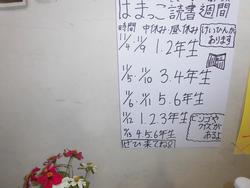 はまっこ読書週間
時間 中休み 昼休み
けいひんが
あります
11/4 11/9 1.2年生
11/5・11/10 3.4年生
11/6・11/11 5.6年生
11/12 1.2.3年生
11/13 4.5.6年生
ビンゴや
クイズが
あるよ
ぜひ来てね